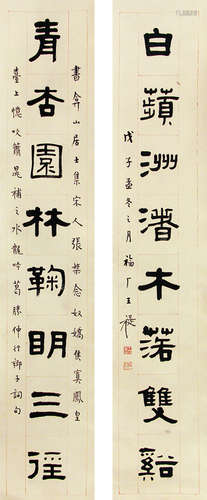 白蘋洲渚木落雙谿
戊子孟冬之月福厂王禔
書弇山居士集宋人張榘念奴嬌侯寘鳳皇
青杏園林鞠眀三徑
臺上憶吹簫晁補之水龍吟葛勝仲行鄉子詞句